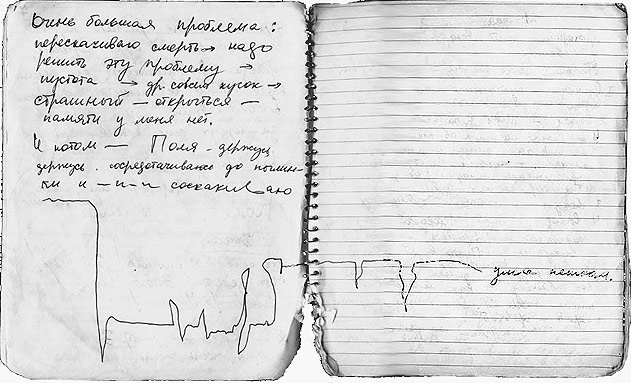 Очень большая проблема:
перескакиваю смерть → надо
решить эту проблему →
пустота → др. совсем кусок →
страшный — откроется —
памяти у меня нет.
И потом — Поля - держусь
держусь. сосредотачиваюсь до пылин-
ки и — и — и соскакиваю
ушла пешком.